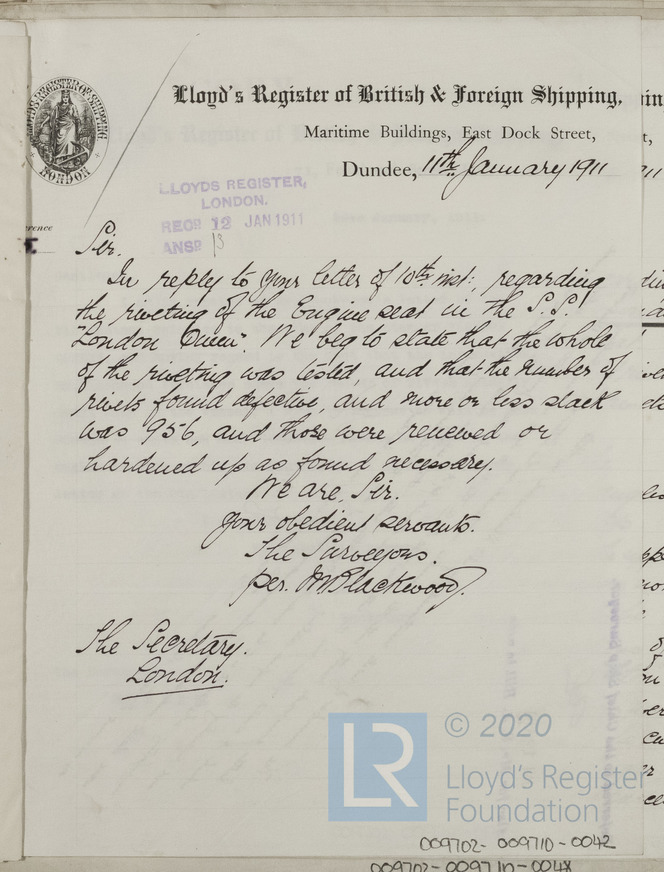 Lloyd's Register of British & Foreign Shipping.
Maritime Buildings, East Dock Street,
Dundee, 11th January 1911
LLOYDS REGISTER,
LONDON.
RECD 12 JAN 1911
ANSD 13
Sir.
In reply to your letter of 10th inst:, regarding
the riveting of the Engine seat in the S.S.
"London Queen". We beg to state that the whole
of the riveting was tested, and that the number of
rivets found defective, and more or less slack
was 956, and those were renewed or
hardened up as found necessary.
We are, Sir.
your obedient servants.
The Surveyors.
per. Blackwood
The Secretary.
London.
LR
© 2020
Lloyd's Register
Foundation
009702-009710-0042